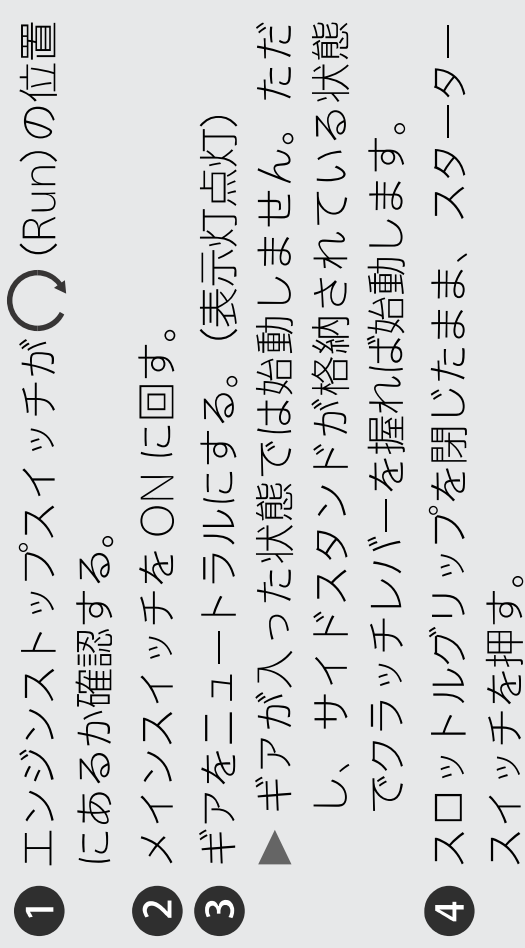 ❶ エンジンストップスイッチが (Run) の位置
にあるか確認する。
❷ メインスイッチを ON に回す。
❸ ギアをニュートラルにする。（表示灯点灯）
▶ ギアが入った状態では始動しません。ただ
し、サイドスタンドが格納されている状態
でクラッチレバーを握れば始動します。
❹ スロットルグリップを閉じたまま、スターター
スイッチを押す。